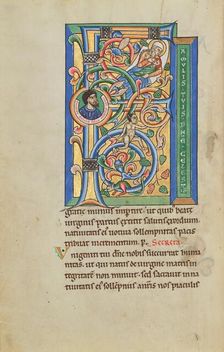 AMVLIS TVIS DNE CELEST
gratie munus impitire. ut quib beate
virginis partus extitit salutis exordium.
natiuitatis ei uotiua sollempnitas pacis
tribuat incrementum. P. Secreta
Vnigeniti tui dne nobis succurrat hu
manitas. ut q natus de uirgine matris in
tegritate non minuit. sed sacrauit in na
tiuitatis ei sollepniis anris nos piaculis